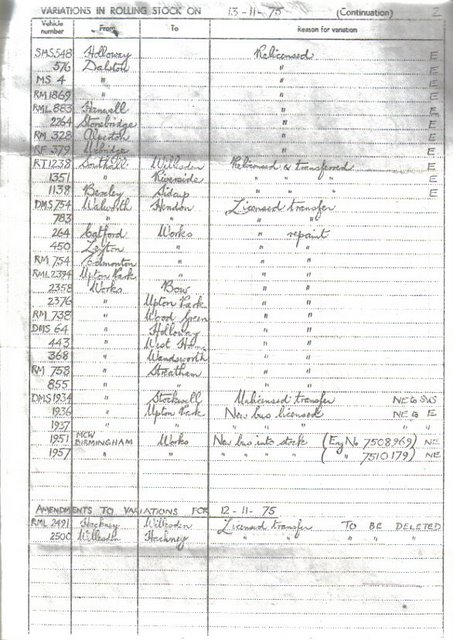 VARIATIONS IN ROLLING STOCK ON 13-11-75 (Continuation) 2
Vehicle number From To Reason for variation
SMS 548 Holloway Relicensed E
576 Dalston " E
MS 4 " " E
RM 1869 " " E
RML 883 Hanwell " E
2264 Stonebridge " E
RM 328 Alperton " E
RF 379 Uxbridge " E
RT 1238 Southall Willesden Relicensed & transferred E
1351 " Riverside " " " E
1138 Bexley Sidcup " " " E
DMS 754 Walworth Hendon Licensed transfer
783 " " " "
264 Catford Works " repaint
450 Leyton " " "
RM 754 Edmonton " " "
RML 2394 Upton Park " " "
2358 Works Bow " "
2376 " Upton Park " "
RM 738 " Wood Green " "
DMS 64 " Holloway " "
443 " West Ham " "
368 " Wandsworth " "
RM 758 " Streatham " "
855 " " " "
DMS 1934 Stockwell Unlicensed transfer NE to SWS
1936 Upton Park New bus licensed NE to E
1937 " " " " " "
1951 MCW BIRMINGHAM Works New bus into stock (Eng No 7508969) NE
1957 " " " " " " ( " 7510179) NE
AMENDMENTS TO VARIATIONS FOR 12-11-75
RML 2491 Hackney Willesden Licensed transfer TO BE DELETED
2500 Willesden Hackney " " " " "